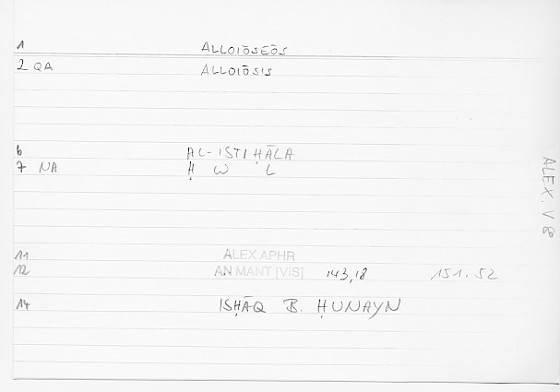 1 ALLOIŌSEŌS
2 QA ALLOIŌSIS
6 AL-ISTIḤĀLA
7 NA Ḥ W L
11 ALEX APHR
12 AN MANT [VIS] 143,18 151.52
14 ISḤĀQ B. ḤUNAYN
ALEX. V8